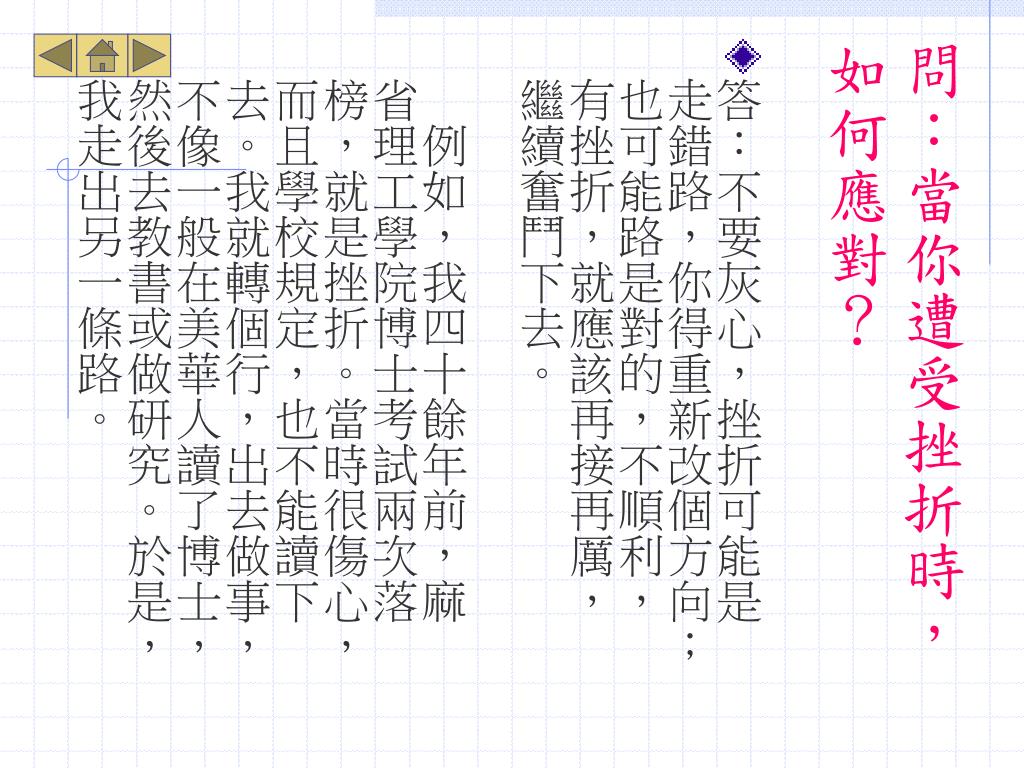 問：當你遭受挫折時，
如何應對？
答：不要灰心，挫折可能是
走錯路，你得重新改個方向；
也可能路是對的，不順利，
有挫折，就應該再接再厲，
繼續奮鬥下去。
例如，我四十餘年前，麻
省理工學院博士考試兩次落
榜，就是挫折。當時很傷心，
而且學校規定，也不能讀下
去。我就轉個行，出去做事，
不像一般在美華人讀了博士，
然後去教書或做研究。於是，
我走出另一條路。